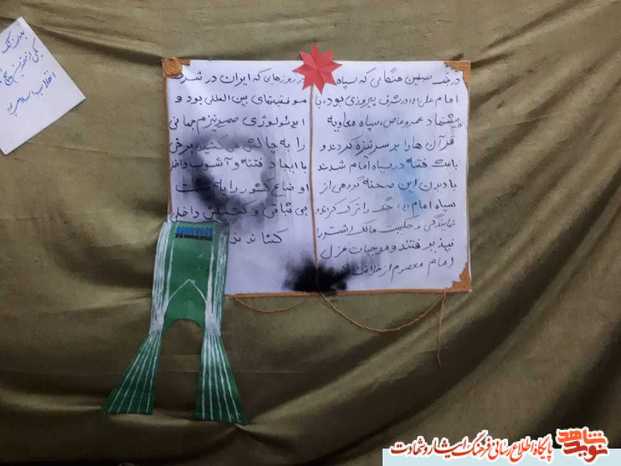 در جنگ صفین هنگامی که سپاه
امام علی (ع) در شرف پیروزی بود، با
پیشنهاد عمروعاص، سپاه معاویه
قرآن ها را بر سر نیزه کردند و
باعث فتنه در سپاه امام شدند
با دیدن این صحنه گروهی از
سپاه امام (ع)، جنگ را ترک کردند و
نپذیرفتند و موجبات عزل
امام معصوم از خلافت
در روزهای که ایران در شرف
موفقیتهای بین المللی بود و
ایدئولوژی صهیونیزم جهانی
را به چالش می کشید، برخی
با ایجاد فتنه و آشوب داخلی
اوضاع کشور را به سمت
بی ثباتی و داخلی
کشاندند
پایگاه اطلاع رسانی فرهنگ ایثار و شهادت
نوید شاهد